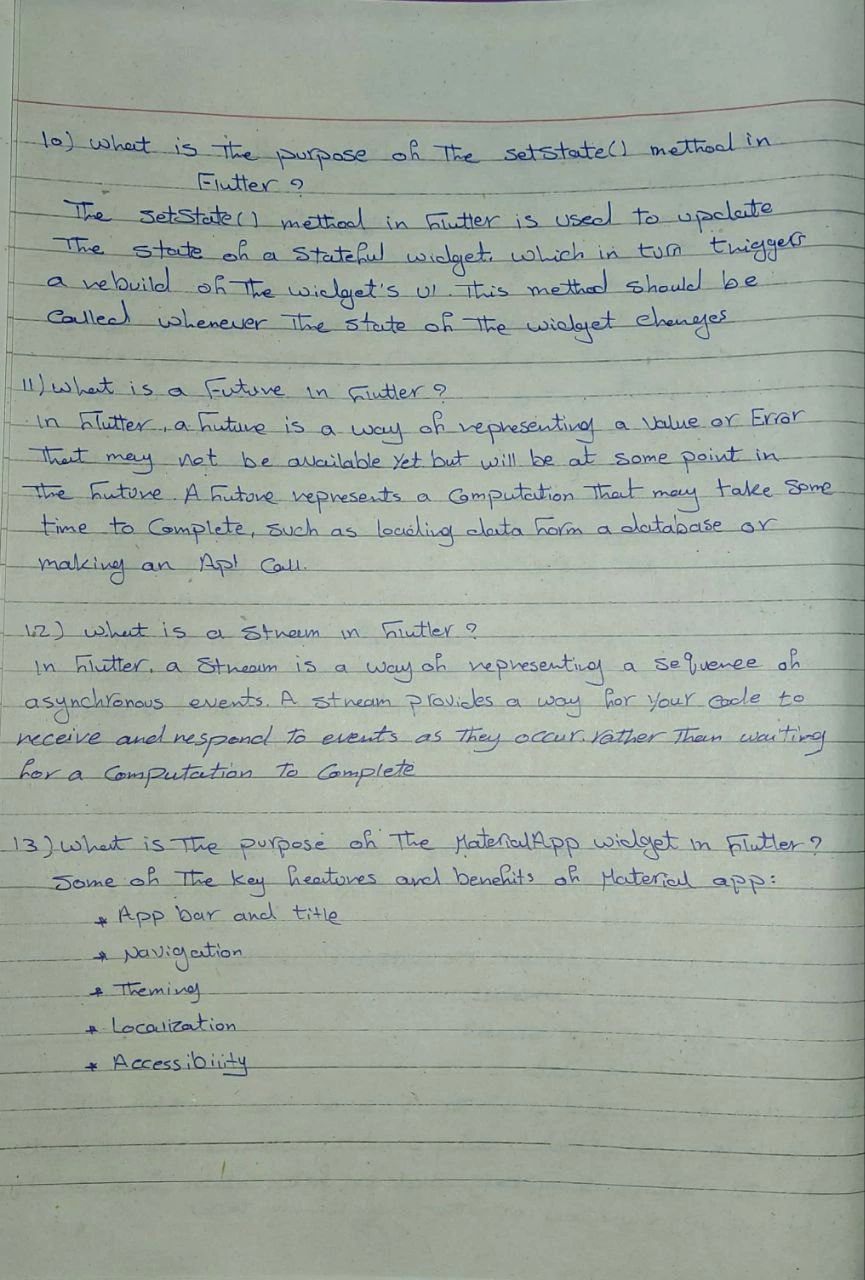 10) What is the purpose of the setstate() method in
Flutter ?
The setstate() method in flutter is used to update
The state of a stateful widget. which in turn triggers
a rebuild of the widget's UI. This method should be
called whenever the state of the widget changes
11) What is a Future in Flutter ?
In Flutter, a future is a way of representing a value or Error
that may not be available yet but will be at some point in
the future. A future represents a computation that may take some
time to complete, such as loading data form a database or
making an API call.
12) What is a stream in Flutter ?
In Flutter, a stream is a way of representing a sequence of
asynchronous events. A stream provides a way for your code to
receive and respond to events as they occur. rather than waiting
for a computation to complete
13) What is the purpose of the MaterialApp widget in Flutter ?
Some of the key features and benefits of Material app:
* App bar and title
* Navigation
* Theming
* Localization
* Accessibility